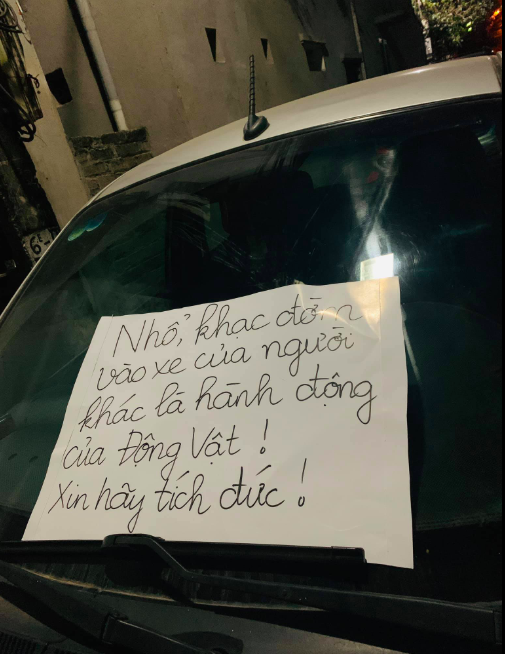 Nhổ, khạc đờm
vào xe của người
khác là hành động
của Động Vật !
Xin hãy tích đức !